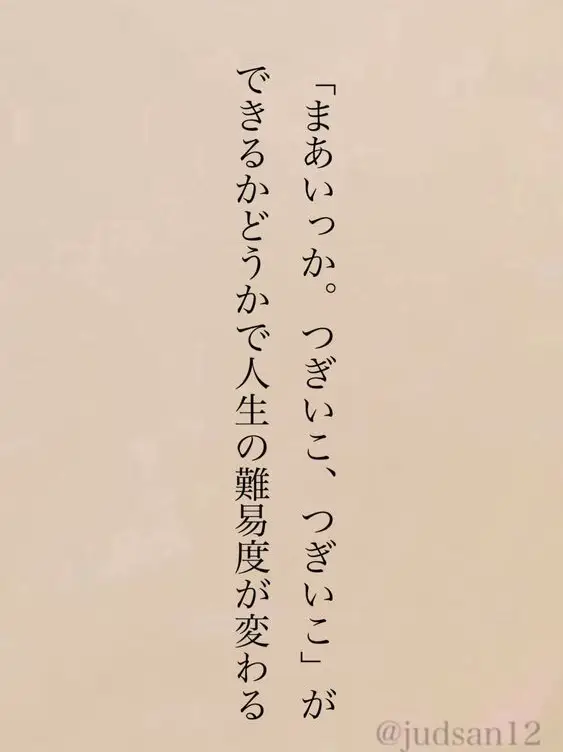 「まあいっか。つぎいこ、つぎいこ」が
できるかどうかで人生の難易度が変わる
@judsan12